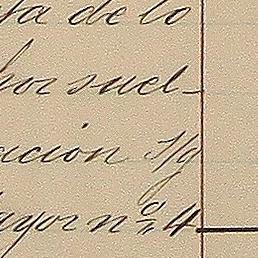 ta de lo
por suel-
ación s/g
ayor nº 4